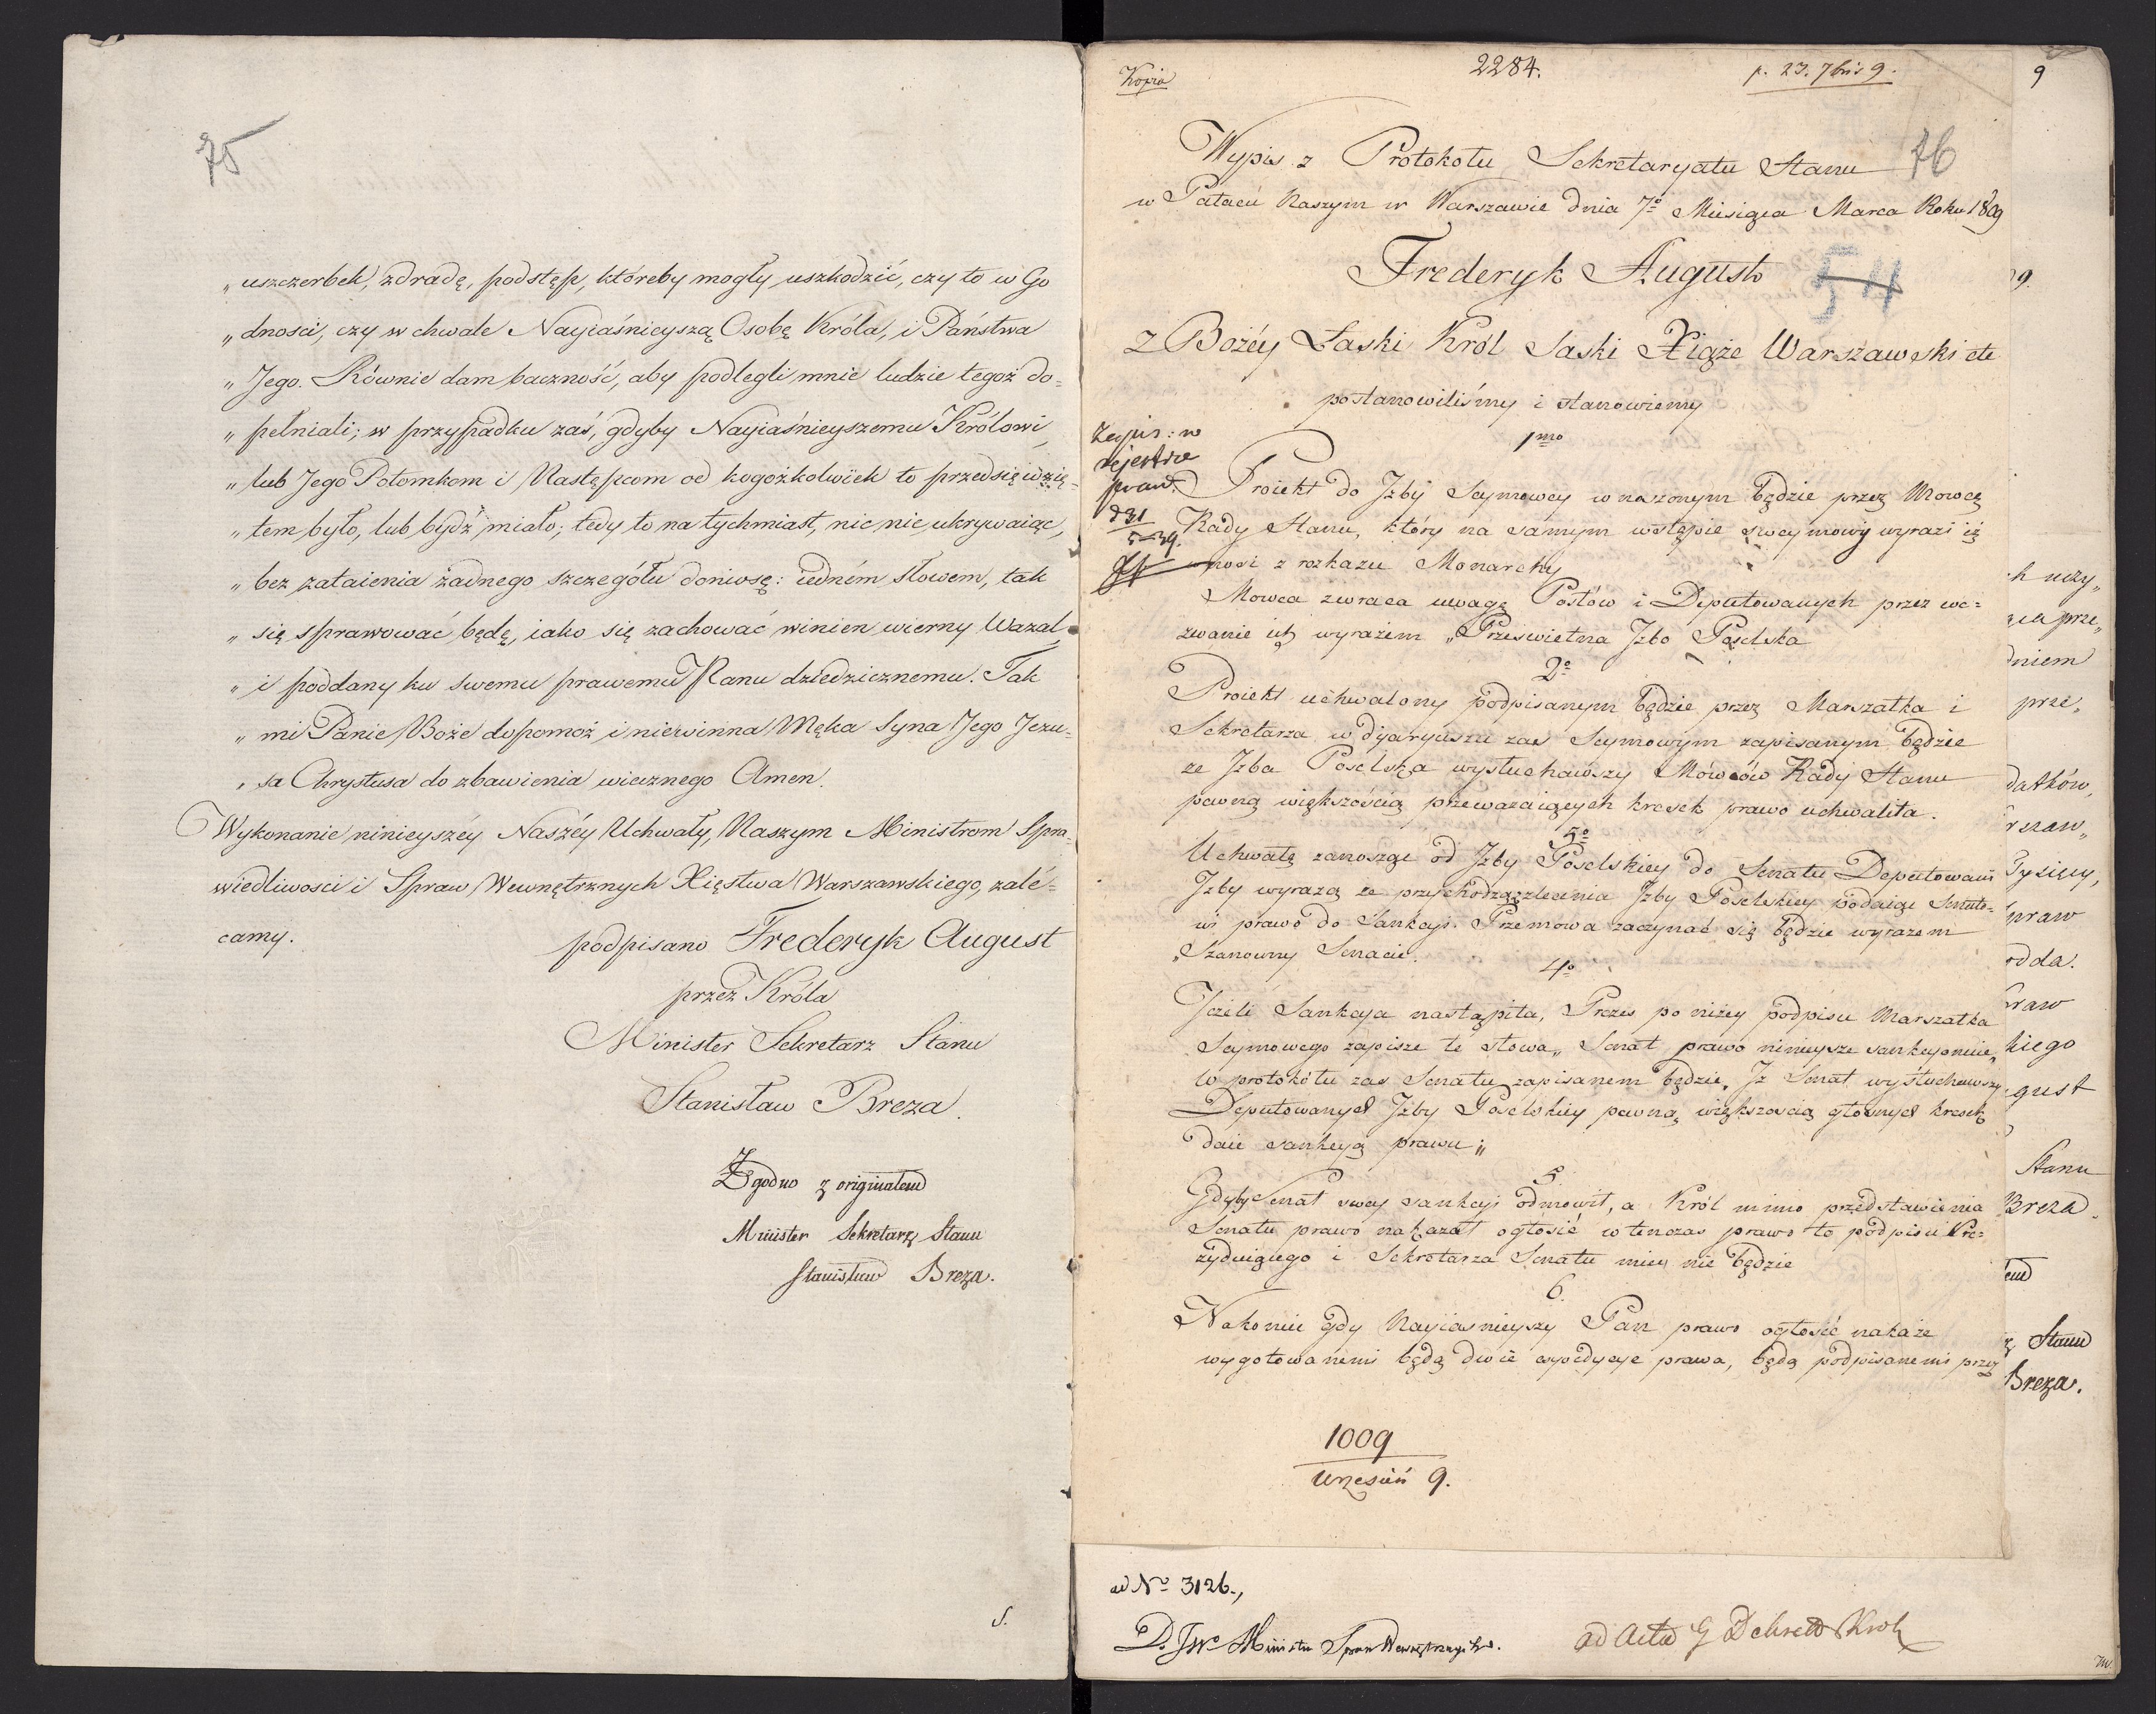 75
„uszczerbek, zdradę, podstęp, któreby mogły uszkodzić, czy to w Go
„dnosci, czy w chwale Nayiaśnieyszą Osobę Króla, i Państwa
„Jego. Równie dam baczność, aby podlegli mnie ludzie tegoż do=
„pełniali; w przypadku zaś, gdyby Nayiaśnieyszemu Królowi
„lub Jego Potomkom i Następcom od kogożkolwiek to przedsięwzię=
„tem było, lub bydź miało; tedy to natychmiast, nic nie ukrywaiąc,
„bez zataienia żadnego szczegółu doniosę: iedném słowem, tak
„się sprawować będę, iako się zachować winien wierny Wazal
„i poddany ku swemu prawemu Panu dziedzicznemu. Tak
„mi Panie Boże dopomoż i niewinna Męka Syna Jego Jezu=
„sa Chrystusa do zbawienia wiecznego Amen.
Wykonanie ninieyszéy Naszéy Uchwały, Naszym Ministrom Spra=
wiedliwosci i Spraw Wewnętrznych Xięstwa Warszawskiego, zalé=
camy.
podpisano Frederyk August
przez Króla
Minister Sekretarz Stanu
Stanisław Breza.
Zgodno z originałem
Minister Sekretarz Stanu
Stanisław Breza.
S.
Kopia
2284.
p. 23. 7bris 9.
9
Wypis z Protokołu Sekretaryatu Stanu
76
w Pałacu Naszym w Warszawie dnia 7º Miesiąca Marca Roku 1809
Frederyk August
54
z Bożéy Łaski Król Saski Xiąże Warszawski etc
postanowiliśmy i stanowiemy
1mo
Zapis: w
rejestrze
praw.
Proiekt do Jzby Seymowey wnaszonym będzie przez Mowcę
Rady Stanu, który na samym wstępie swey mowy wyrazi iż
wnosi z rozkazu Monarchy
Mowca zwraca uwagę Posłów i Deputowanych przez we=
zwanie ich wyrazem „Prześwietna Jzbo Poselska
2º
Proiekt uchwalony podpisanym będzie przez Marszałka i
Sekretarza w dyaryuszu zas Seymowym zapisanym będzie
ze Jzba Poselska wysłuchawszy Mówców Rady Stanu
pewną większością przeważaiących kresek prawo uchwaliła.
3º
Uchwałę zanosząc od Jzby Poselskiey do Senatu Deputowani
Jzby wyrażą ze przychodzą z zlecenia Jzby Poselskiey podaiąc Senato=
wi prawo do Sankcyi. Przemowa zaczynać się będzie wyrazem
„Szanowny Senacie.
4º
Jeżeli Sankcya nastąpiła, Prezes po niżey podpisu Marszałka
Seymowego zapisze te słowa „Senat prawo ninieysze sankcyonuie„
W protokółu zas Senatu zapisanem będzie, Jż Senat wysłuchawszy
Deputowanych Jzby Poselskiey pewną większoscią głosnych kresek
daie sankcyą prawu„
5.
Gdyby Senat swey sankcyi odmowił, a Król mimo przedstawienia
Senatu prawo nakazał ogłosić w tenczas prawo to podpisu Pre=
zyduiącego i Sekretarza Senatu miec nie będzie
6.
Nakoniec gdy Nayiasnieyszy Pan prawo ogłosić nakaże
wygotowanemi będą dwie expedycye prawa, będą podpisanemi przez
1009
Wrzesień 9.
ad Nº 3126.,
Do JWº Ministra Spraw Wewnętrznych.
ad Acta G Dekretów Król
9.
h uczy„
dniem
prze„
datków,
rszaw„
Tysięcy,
praw
odda.
praw
kiego
gust
Stanu
Breza.
z Stanu
Breza.